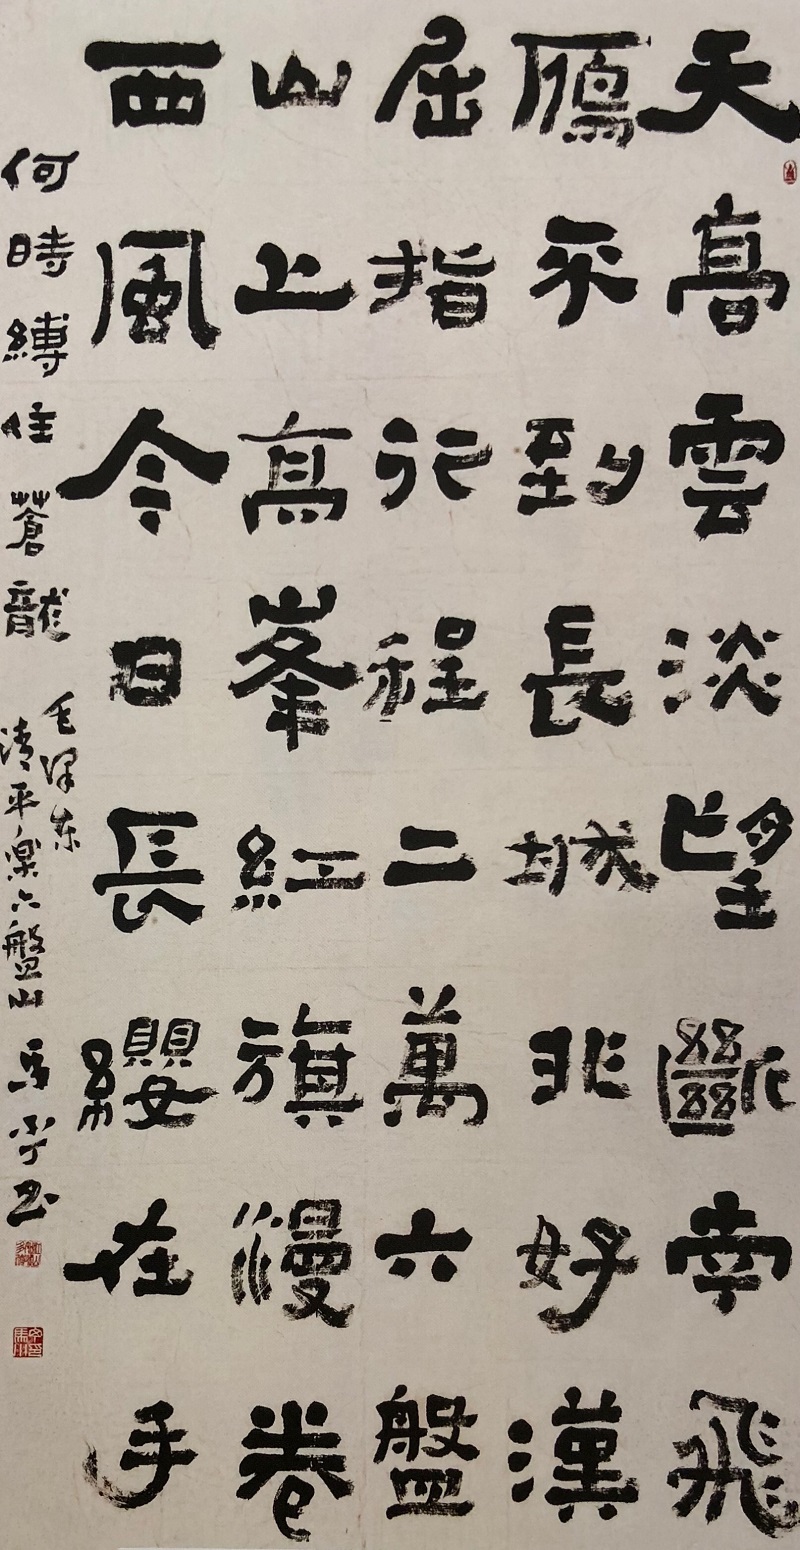 天高雲淡望斷南飛
鴈不到長城非好漢
屈指行程二萬六盤
山上高峯紅旗漫卷
西風今日長纓在手
何時縛住蒼龍
毛泽东
清平樂六盤山 馬 书